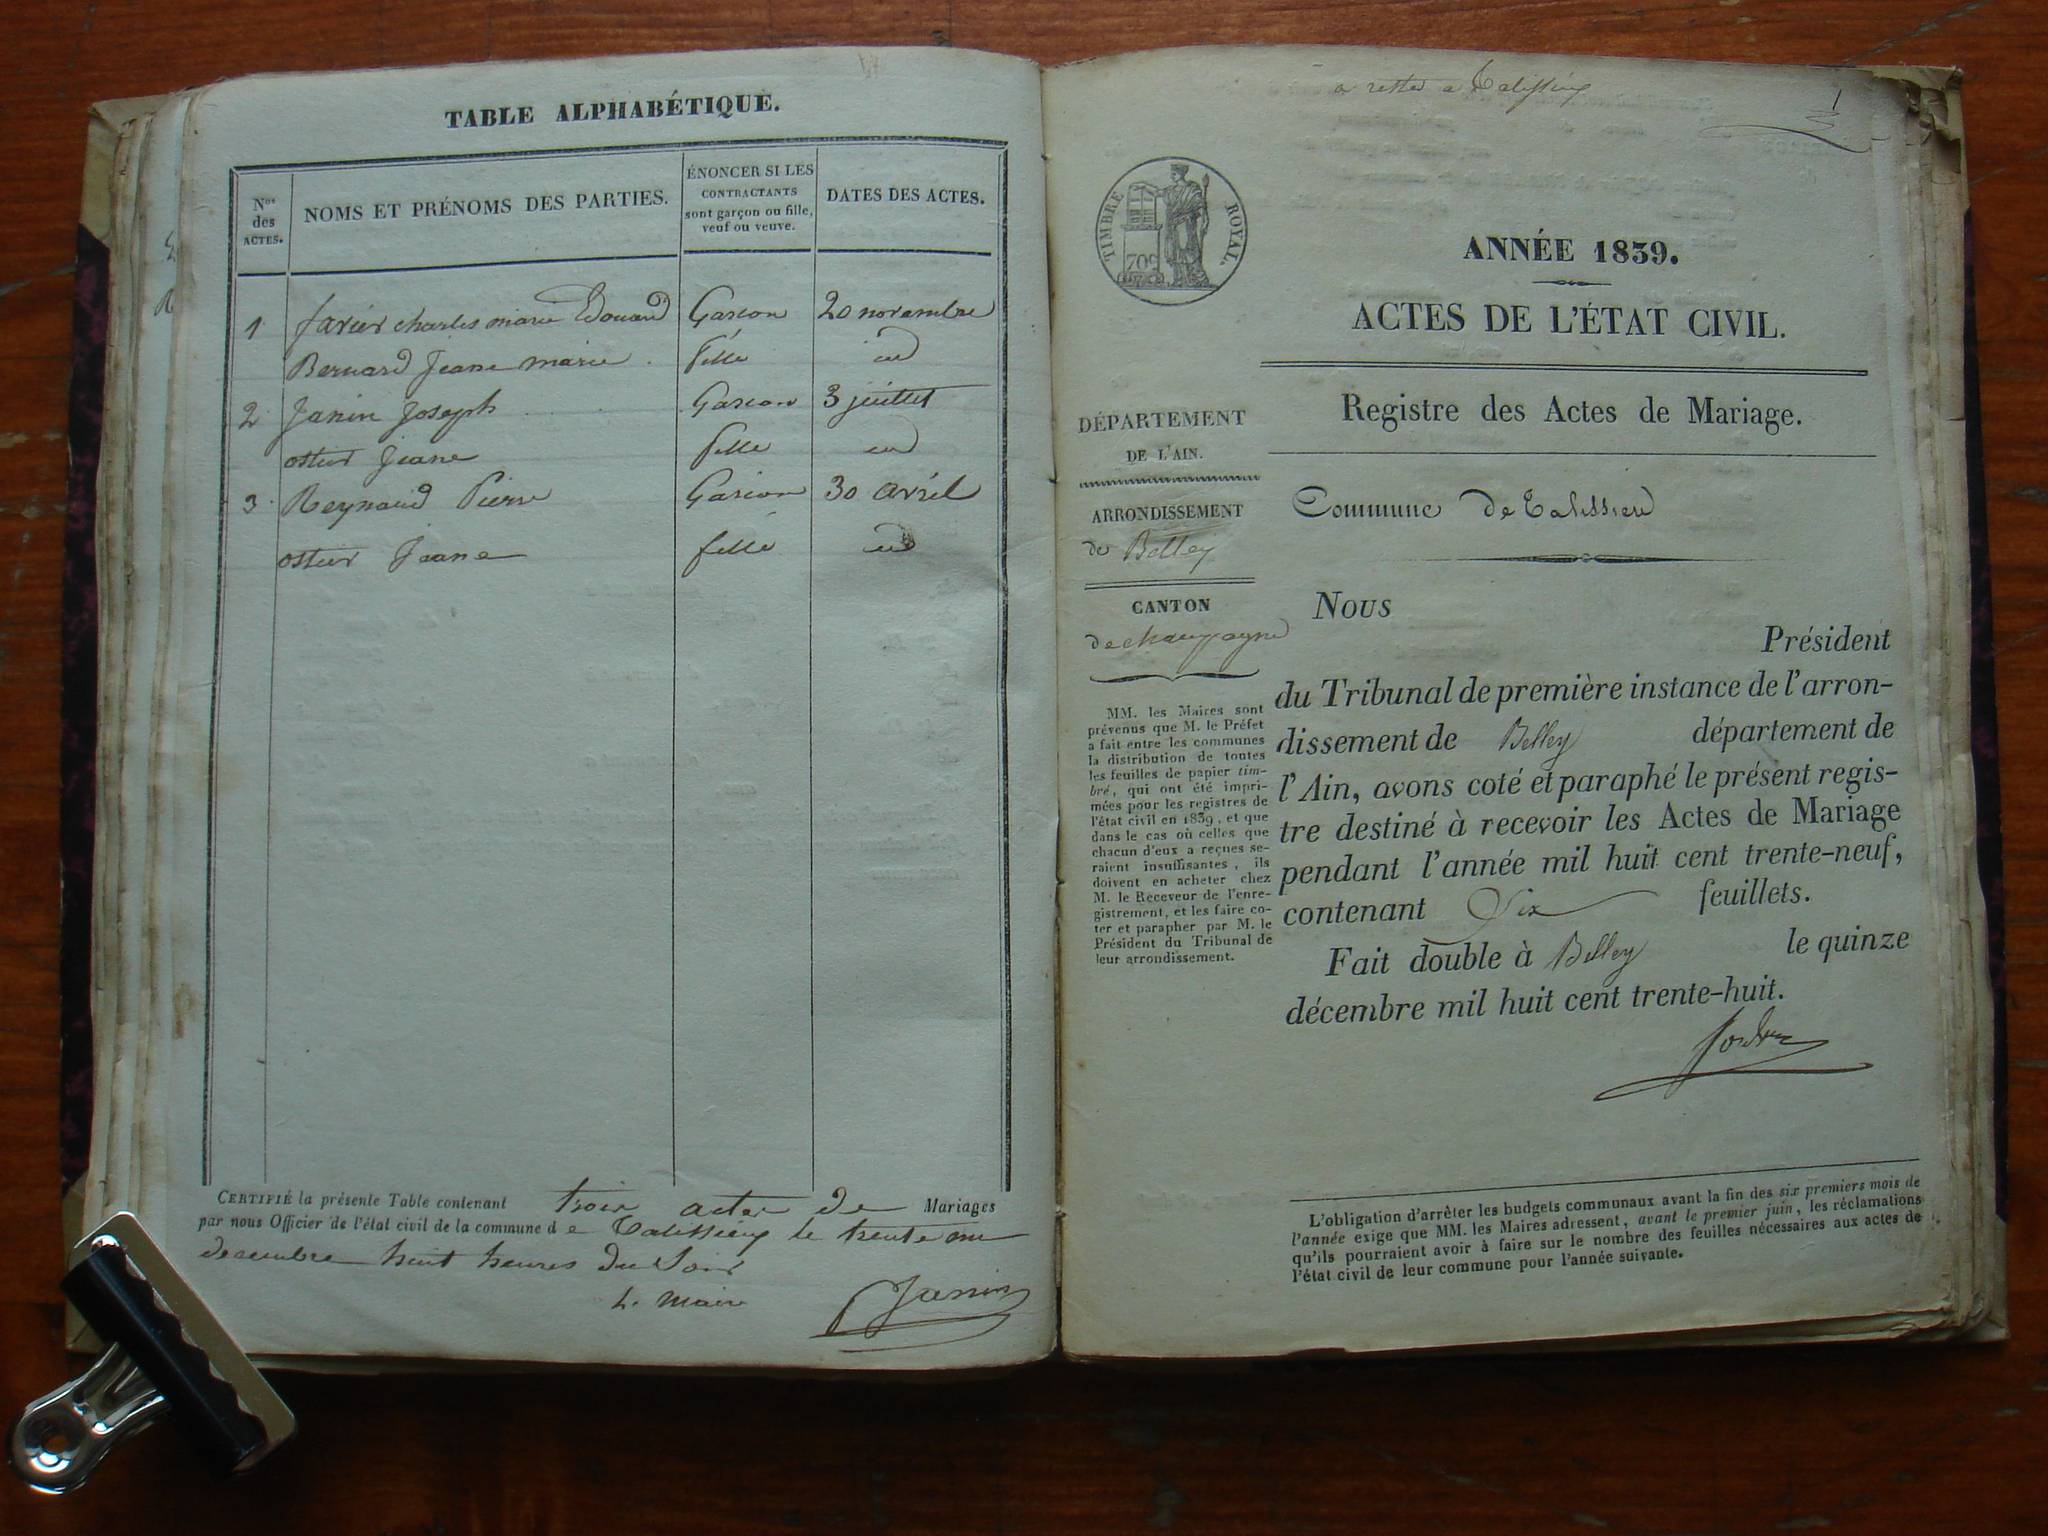 TABLE ALPHABÉTIQUE.
Nos des ACTES.
NOMS ET PRÉNOMS DES PARTIES.
ÉNONCER SI LES CONTRACTANTS sont garçon ou fille, veuf ou veuve.
DATES DES ACTES.
1 favier charles marie Edouard Garcon 20 novembre
Bernard Jeane marie fille id
2 Janin Joseph Garcon 3 juillet
ostier Jeane fille id
3 Reynaud Pierre Garcon 30 avril
ostier Jeane fille id
CERTIFIÉ la présente Table contenant trois actes de Mariages
par nous Officier de l'état civil de la commune de Talissieu le trente un
decembre huit heures du Soir
Le Maire Janin
a rester a Talissieu
1
TIMBRE ROYAL.
70c
ANNÉE 1839.
ACTES DE L'ÉTAT CIVIL.
Registre des Actes de Mariage.
Commune de Talissieu
DÉPARTEMENT
DE L'AIN.
ARRONDISSEMENT
de Belley
CANTON
de champagne
MM. les Maires sont
prévenus que M. le Préfet
a fait entre les communes
la distribution de toutes
les feuilles de papier tim-
bré, qui ont été impri-
mées pour les registres de
l'état civil en 1839, et que
dans le cas où celles que
chacun d'eux a reçues se-
raient insuffisantes, ils
doivent en acheter chez
M. le Receveur de l'enre-
gistrement, et les faire co-
ter et parapher par M. le
Président du Tribunal de
leur arrondissement.
Nous
Président
du Tribunal de première instance de l'arron-
dissement de Belley département de
l'Ain, avons coté et paraphé le présent regis-
tre destiné à recevoir les Actes de Mariage
pendant l'année mil huit cent trente-neuf,
contenant Six feuillets.
Fait double à Belley le quinze
décembre mil huit cent trente-huit.
L'obligation d'arrêter les budgets communaux avant la fin des six premiers mois de
l'année exige que MM. les Maires adressent, avant le premier juin, les réclamations
qu'ils pourraient avoir à faire sur le nombre des feuilles nécessaires aux actes de
l'état civil de leur commune pour l'année suivante.